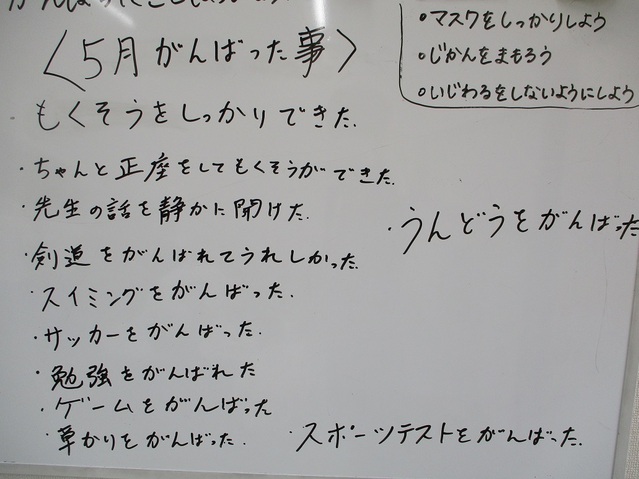 ・マスクをしっかりしよう
・じかんをまもろう
・いじわるをしないようにしよう
〈5月がんばった事〉
もくそうをしっかりできた.
・ちゃんと正座をしてもくそうができた.
・先生の話を静かに聞けた.
・うんどうをがんばった
・剣道をがんばれてうれしかった.
・スイミングをがんばった.
・サッカーをがんばった.
・勉強をがんばれた
・ゲームをがんばった
・草かりをがんばった.
・スポーツテストをがんばった.